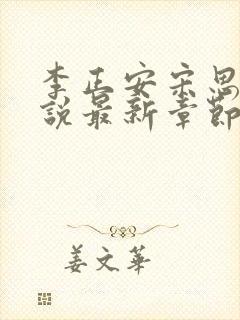 李正安宋思
說最新章節
姜文華